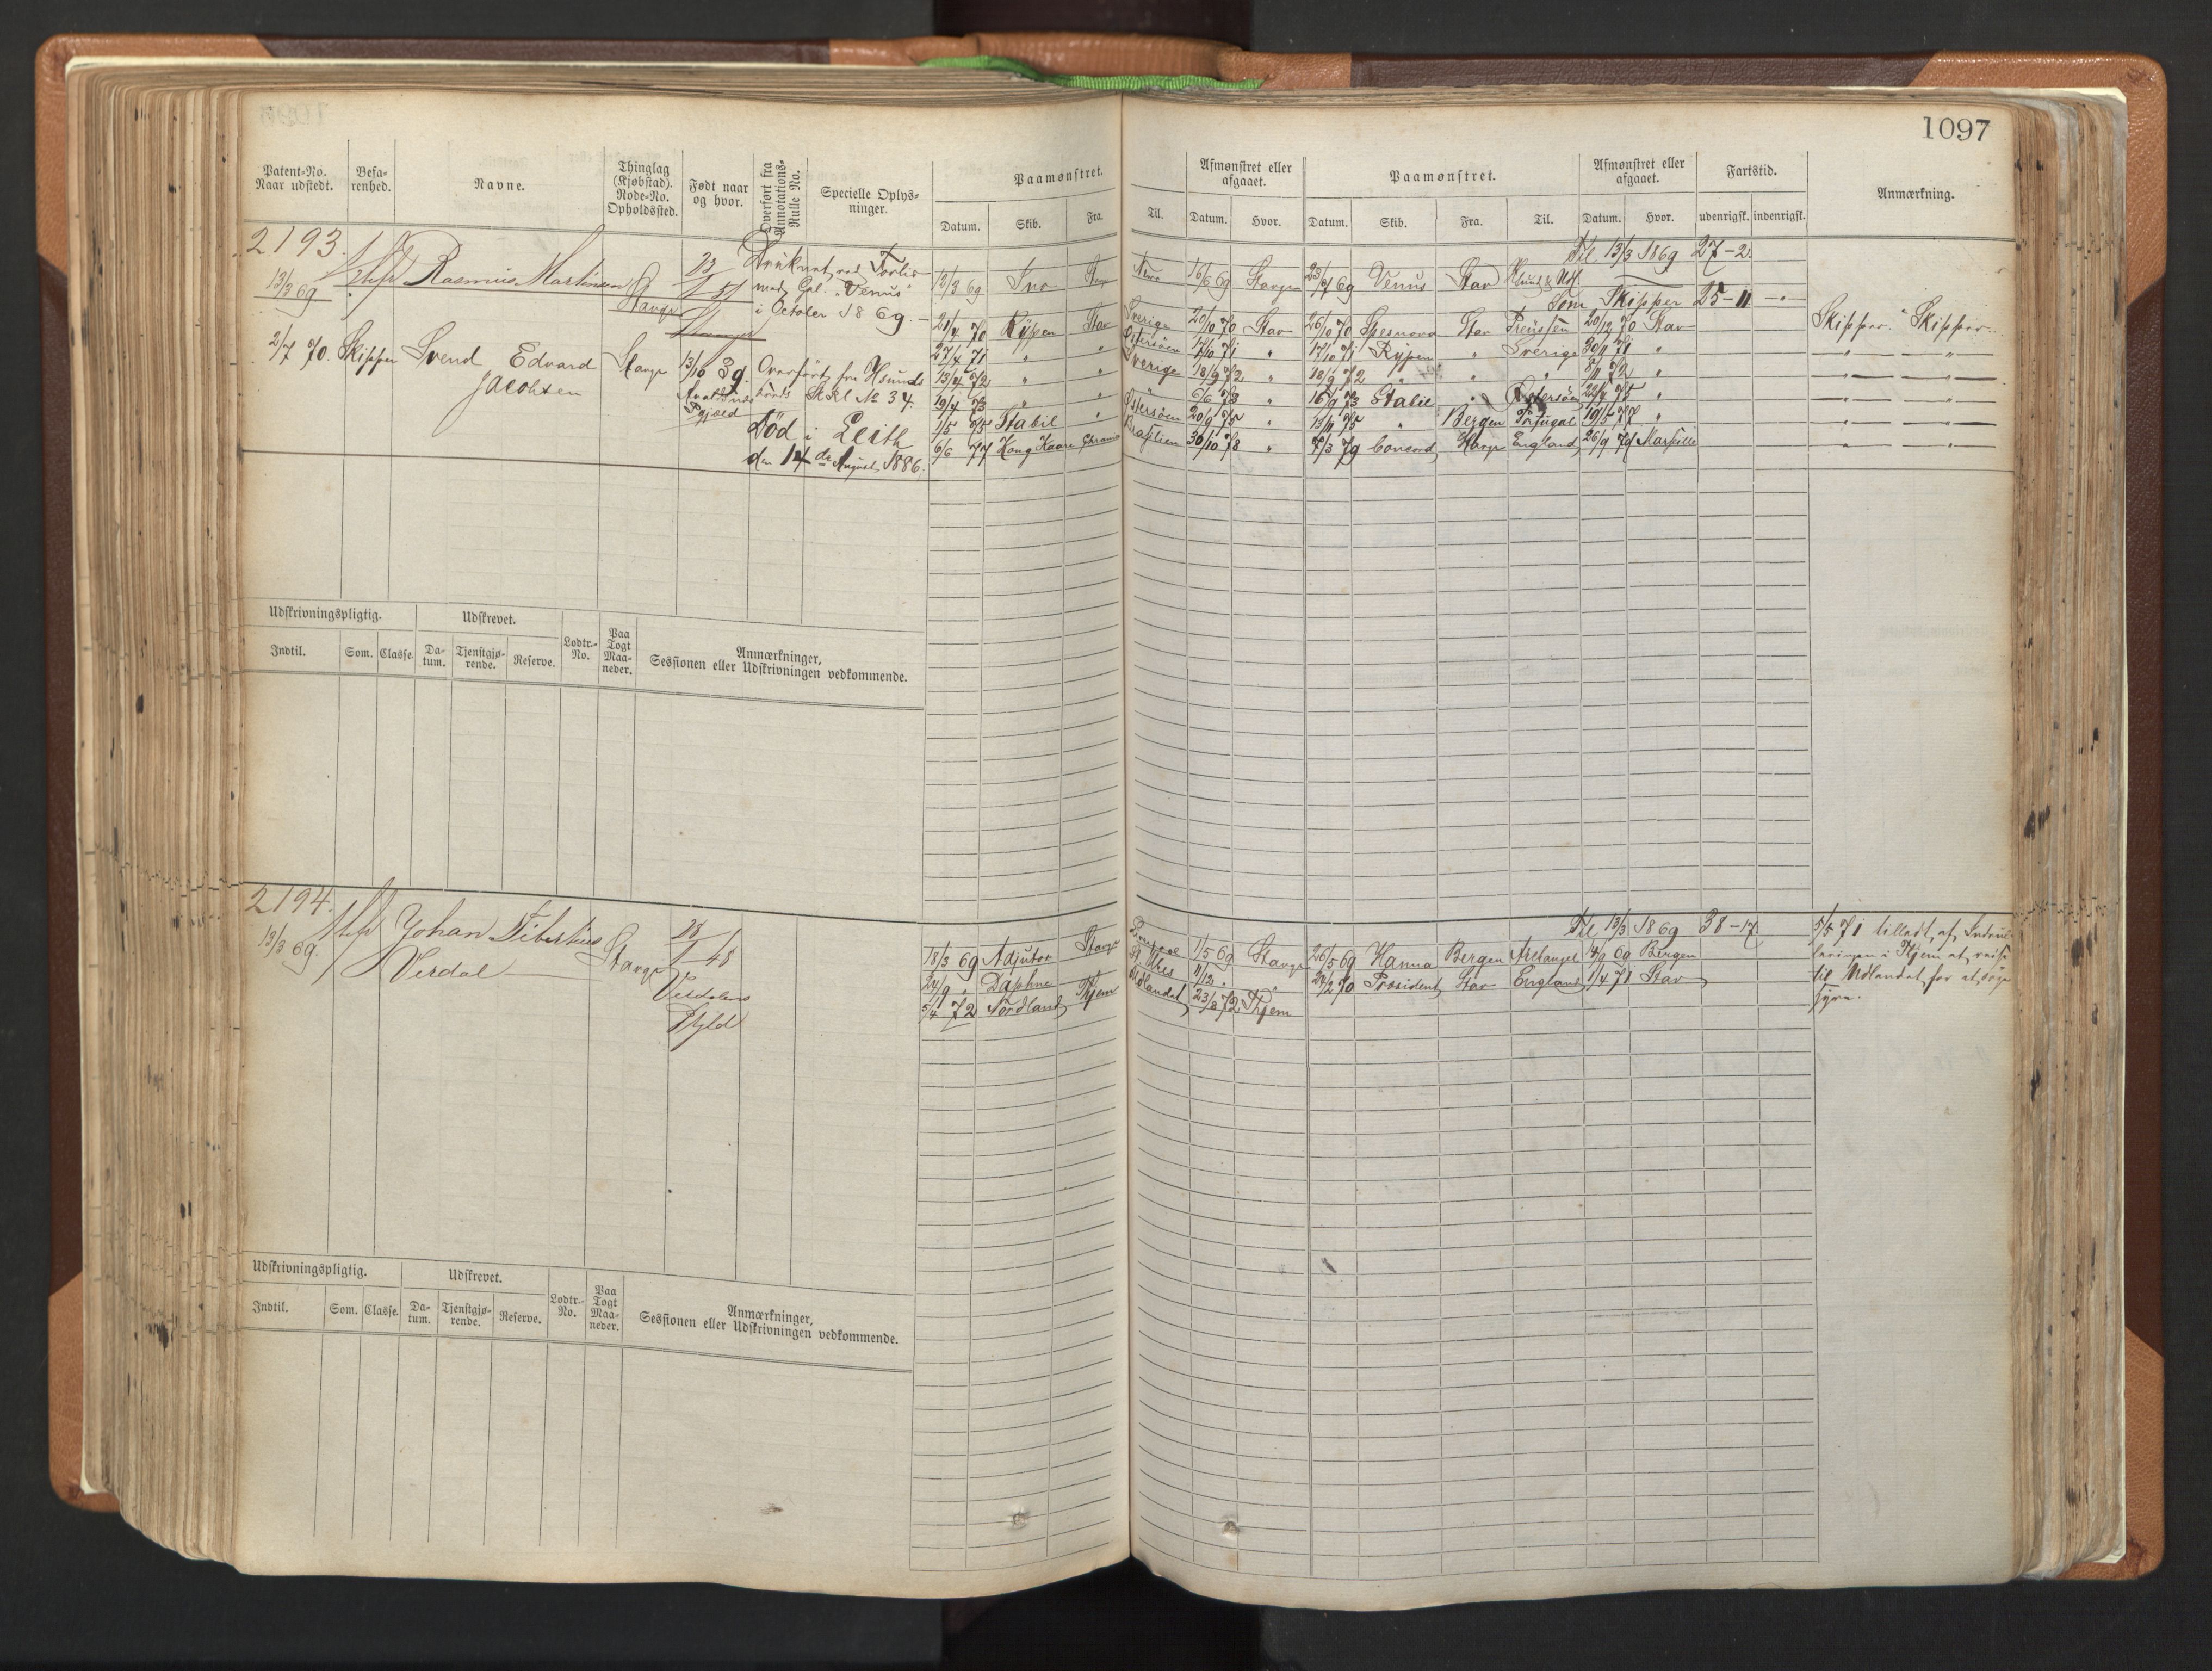 1097
Patent-No. Naar udstedt.
Befarenhed.
Navne.
Thinglag (Kjøbstad). Rode-No. Opholdssted.
Født naar og hvor.
Overført fra Annotations-Rulle No.
Specielle Oplysninger.
Paamønstret.
Datum. Skib. Fra. Til.
Afmønstret eller afgaaet.
Datum. Hvor.
Paamønstret.
Datum. Skib. Fra. Til.
Afmønstret eller afgaaet.
Datum. Hvor.
Fartstid.
udenrigsk. indenrigsk.
Anmærkning.
2193.
13/3 69
Rasmus Martinsen
Stavgr
23/1 51
Druknet ved Forlis
med Gal. "Venus"
i October 1869.
Til 13/3 1869 27-2.
12/3 69 Ino 16/6 69 Stavgr 23/7 69 Venus Stav
Som Skipper 25-11 -"-
2/7 70. Skipper Svend Edvard
Jacobsen
Stavgr
13/10 39.
Skjold
Overført fra Hsunds
Skl No 34.
Död i Leith
den 14de August 1886.
21/4 70 Rypen Stav Sverige 20/10 70 Stav 26/10 70 Spesnova Stav Preussen 20/12 70 Stav Skipper " Skipper
27/4 71 " " Östersöen 17/10 71 " 17/10 71 Rypen " Sverige 30/11 71 " -"- -"-
13/4 72 " " Sverige 18/9 72 " 18/9 72 " " " 8/11 72 " -"- -"-
19/4 73 " " " 6/6 73 " 16/9 73 Stabil " Östersöen 22/4 75 " -"- -"-
1/5 75 Stabil " Östersöen 20/9 75 " 13/11 75 " Bergen Portugal 19/5 77 " -"- -"-
6/6 77 Kong Haare Chrania Brasilien 30/10 78 " 7/3 79 Concord Stavgr England 26/9 79 Marseille " "
Udskrivningspligtig.
Indtil. Som. Classe.
Udskrevet.
Datum. Tjenstgjørende. Reserve.
Lodtr.-No.
Paa Togt Maaneder.
Anmærkninger,
Sessionen eller Udskrivningen vedkommende.
2194.
13/3 69.
Johan Tibertius
Verdal
Stavgr
28/1 48
Verdalens
Pgld
Til 13/3 1869 38-17
18/3 69 Adjutor Stavgr 1/5 69 Stavgr 26/5 69 Hanna Bergen Archangel 4/9 69 Bergen
24/9 " Daphne St Ybes 11/12 " " 24/2 70 President Stav England 1/4 71 Stav
5/4 72 Nordland Thjem Udlandet 23/8 72 Thjem
3/5 71 tilladt af Indrul-
leringen i Thjem at reise
til Udlandet for at söge
Hyre.
Udskrivningspligtig.
Indtil. Som. Classe.
Udskrevet.
Datum. Tjenstgjørende. Reserve.
Lodtr.-No.
Paa Togt Maaneder.
Anmærkninger,
Sessionen eller Udskrivningen vedkommende.